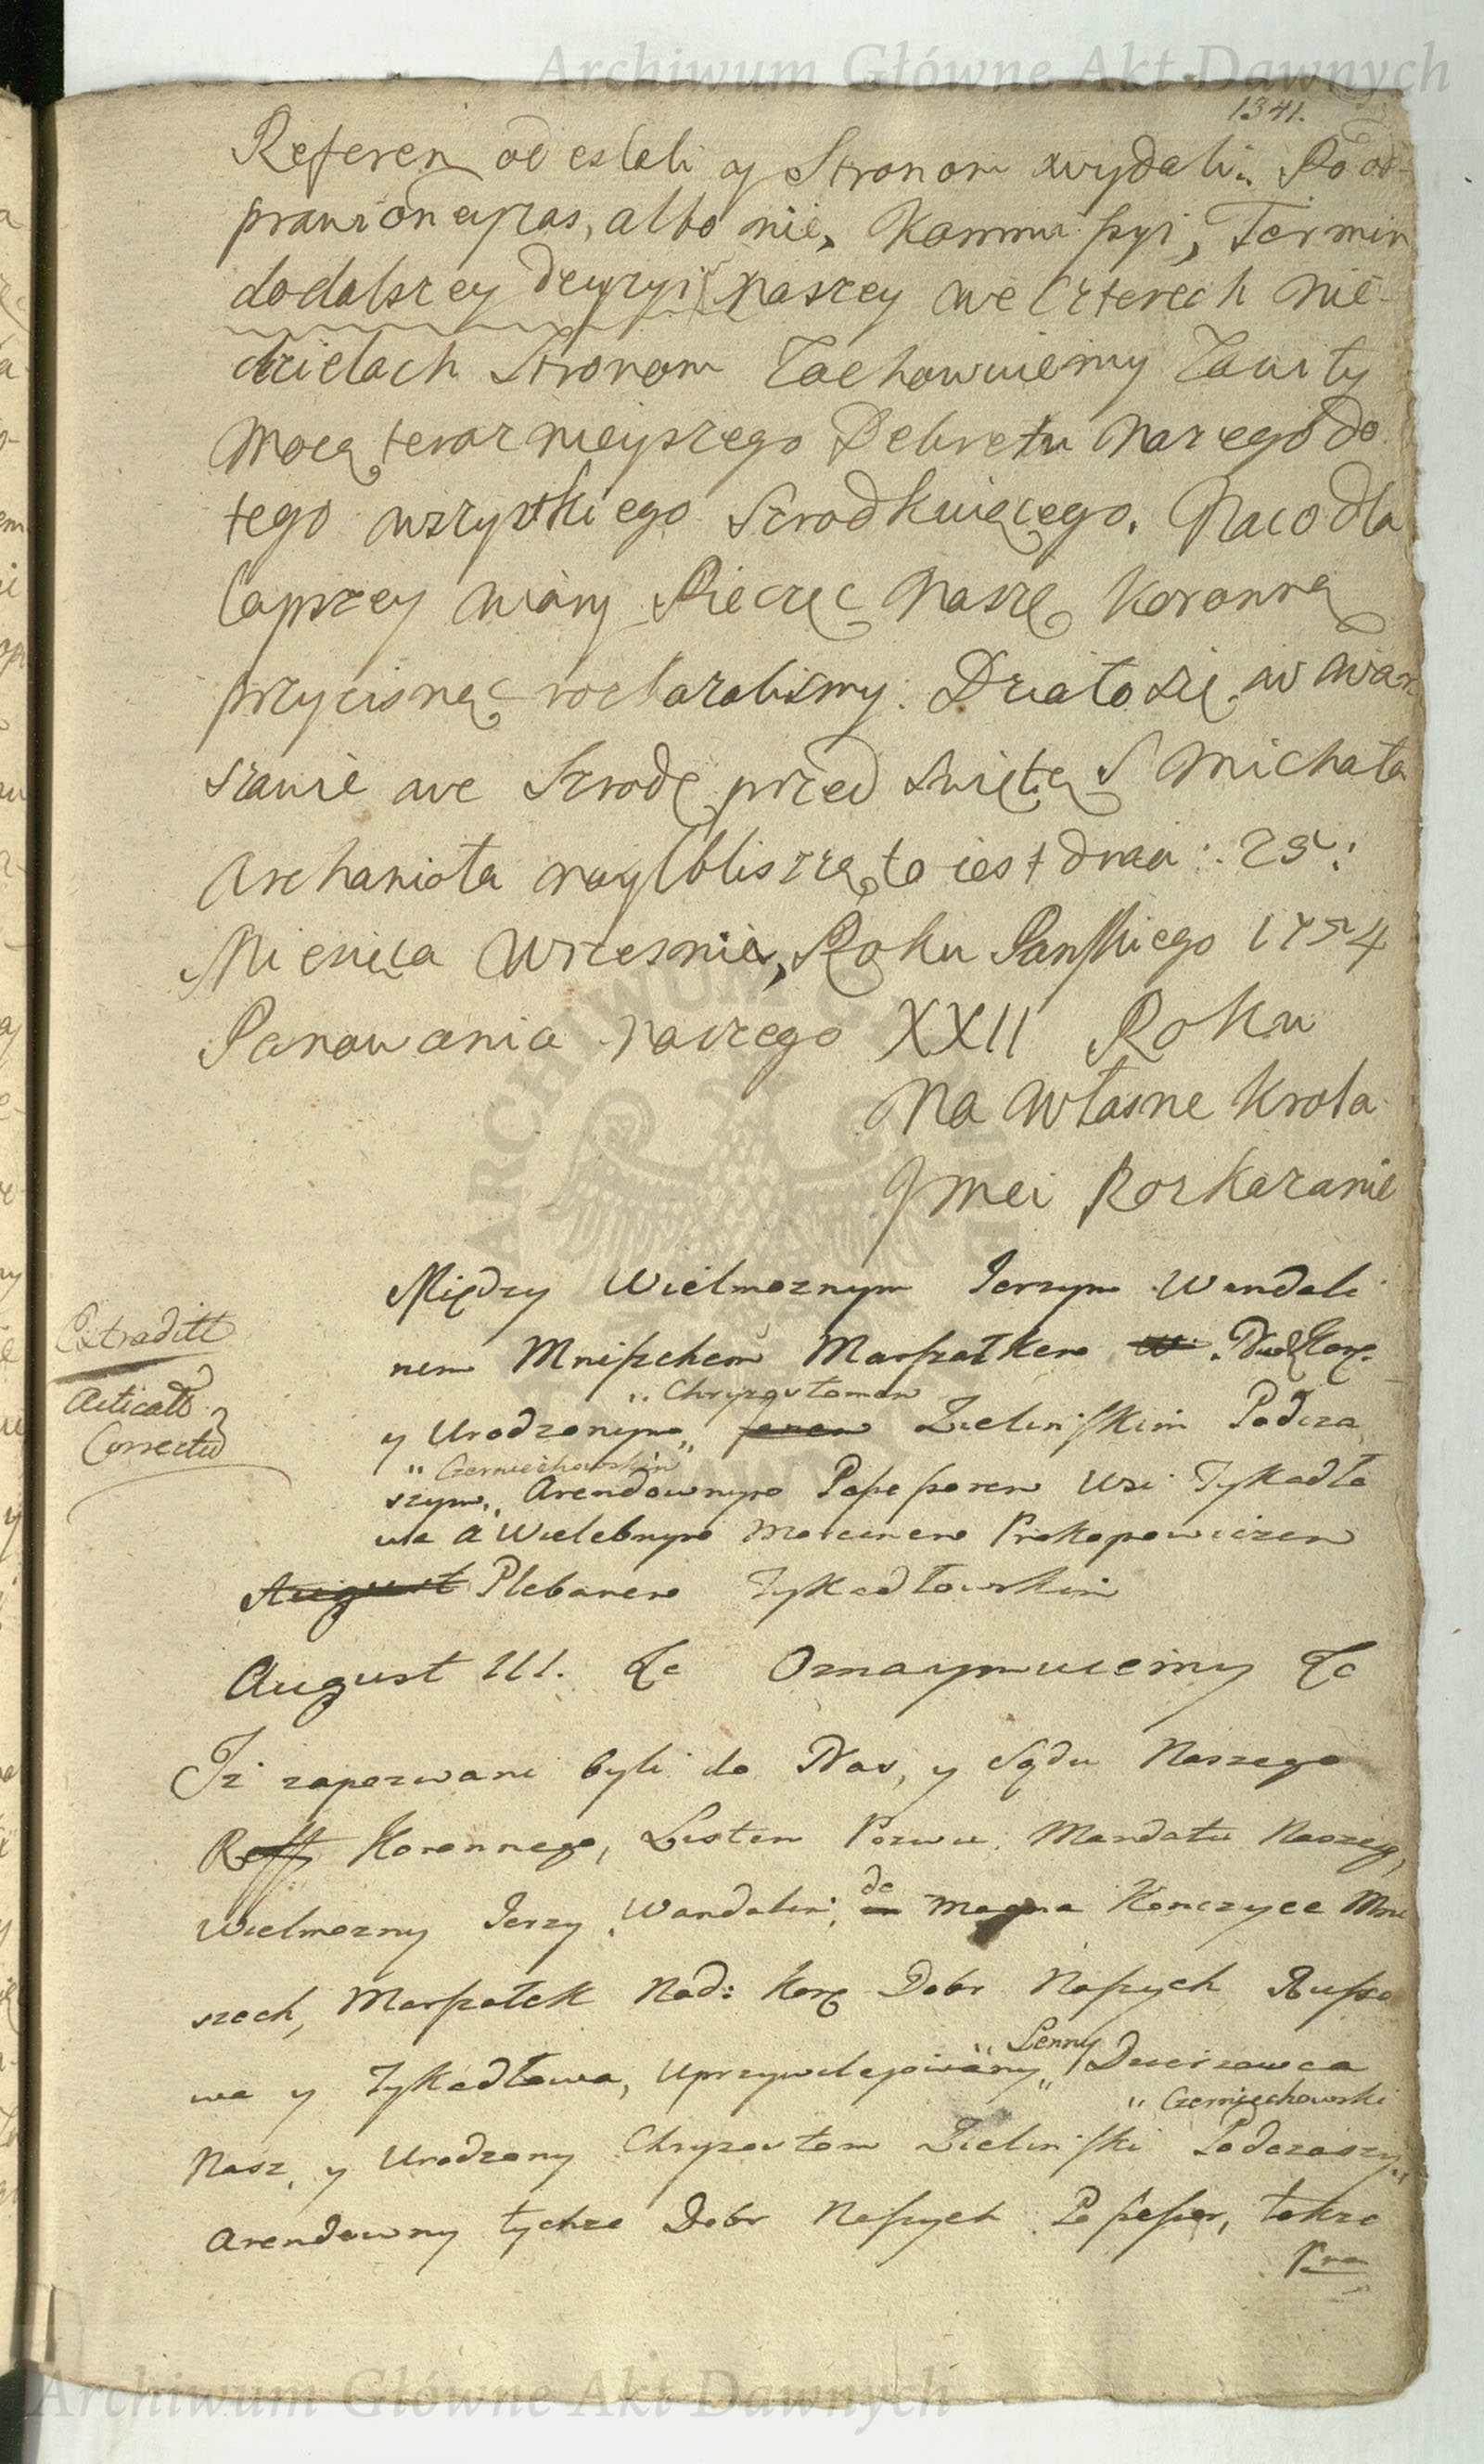 Archiwum Główne Akt Dawnych
1341.
Referen odesłali y Stronom wydali. Po od-
prawioney zas, albo nie, Kommissyi, Termin
do dalszey decyzyi Naszey we Czterech Nie-
dzielach Stronom Zachowuiemy Zawity
Mocą teraznieyszego Dekretu Naszego do
tego wszystkiego Szrodkuiącego. Na co dla
lepszey wiary Pieczęc Naszę Koronną
przycisnąc roskazalismy. Działo się w War
szawie we Szrodę przed Swiętem S Michała
Archanioła naybliszszą to iest dnia: 25:
Miesięca Wrzesnia, Roku Panskiego 1754
Panowania naszego XXII Roku
Na własne Krola
Jmci Rozkazanie
Między Wielmoznym Jerzym Wandali
nem Mniszchem Marszałkem Nad Korn.
„ Chryzostomem
y Urodzonym „ Zielinskim Podcza
„ Czerniechowskim
szym „ Arendownym Possessorem Wsi Tykadło
wa a Wielebnym Marcinem Prokopowiczem
Extraditt
Acticatt
Correctū
August Plebanem Tykadłowskim
August III. &c Oznaymuiemy &c
Iż zapozwani byli do Nas, y Sądu Naszego
Reff Koronnego, Listem Pozwu Mandatu Naszego,
Wielmozny Jerzy Wandalin, de Magna Konczyce Mni
szech, Marszałek Nad: Kor Dobr Naszych Russo
„ Lenny
wa y Tykadłowa, Uprzywilejowany „ Dzierzawca
„ Czerniechowski
Nasz, y Urodzony Chryzostom Zielinski Podczaszy „
Arendowny tychze Dobr Naszych Possessor, takze
Pra
Archiwum Główne Akt Dawnych